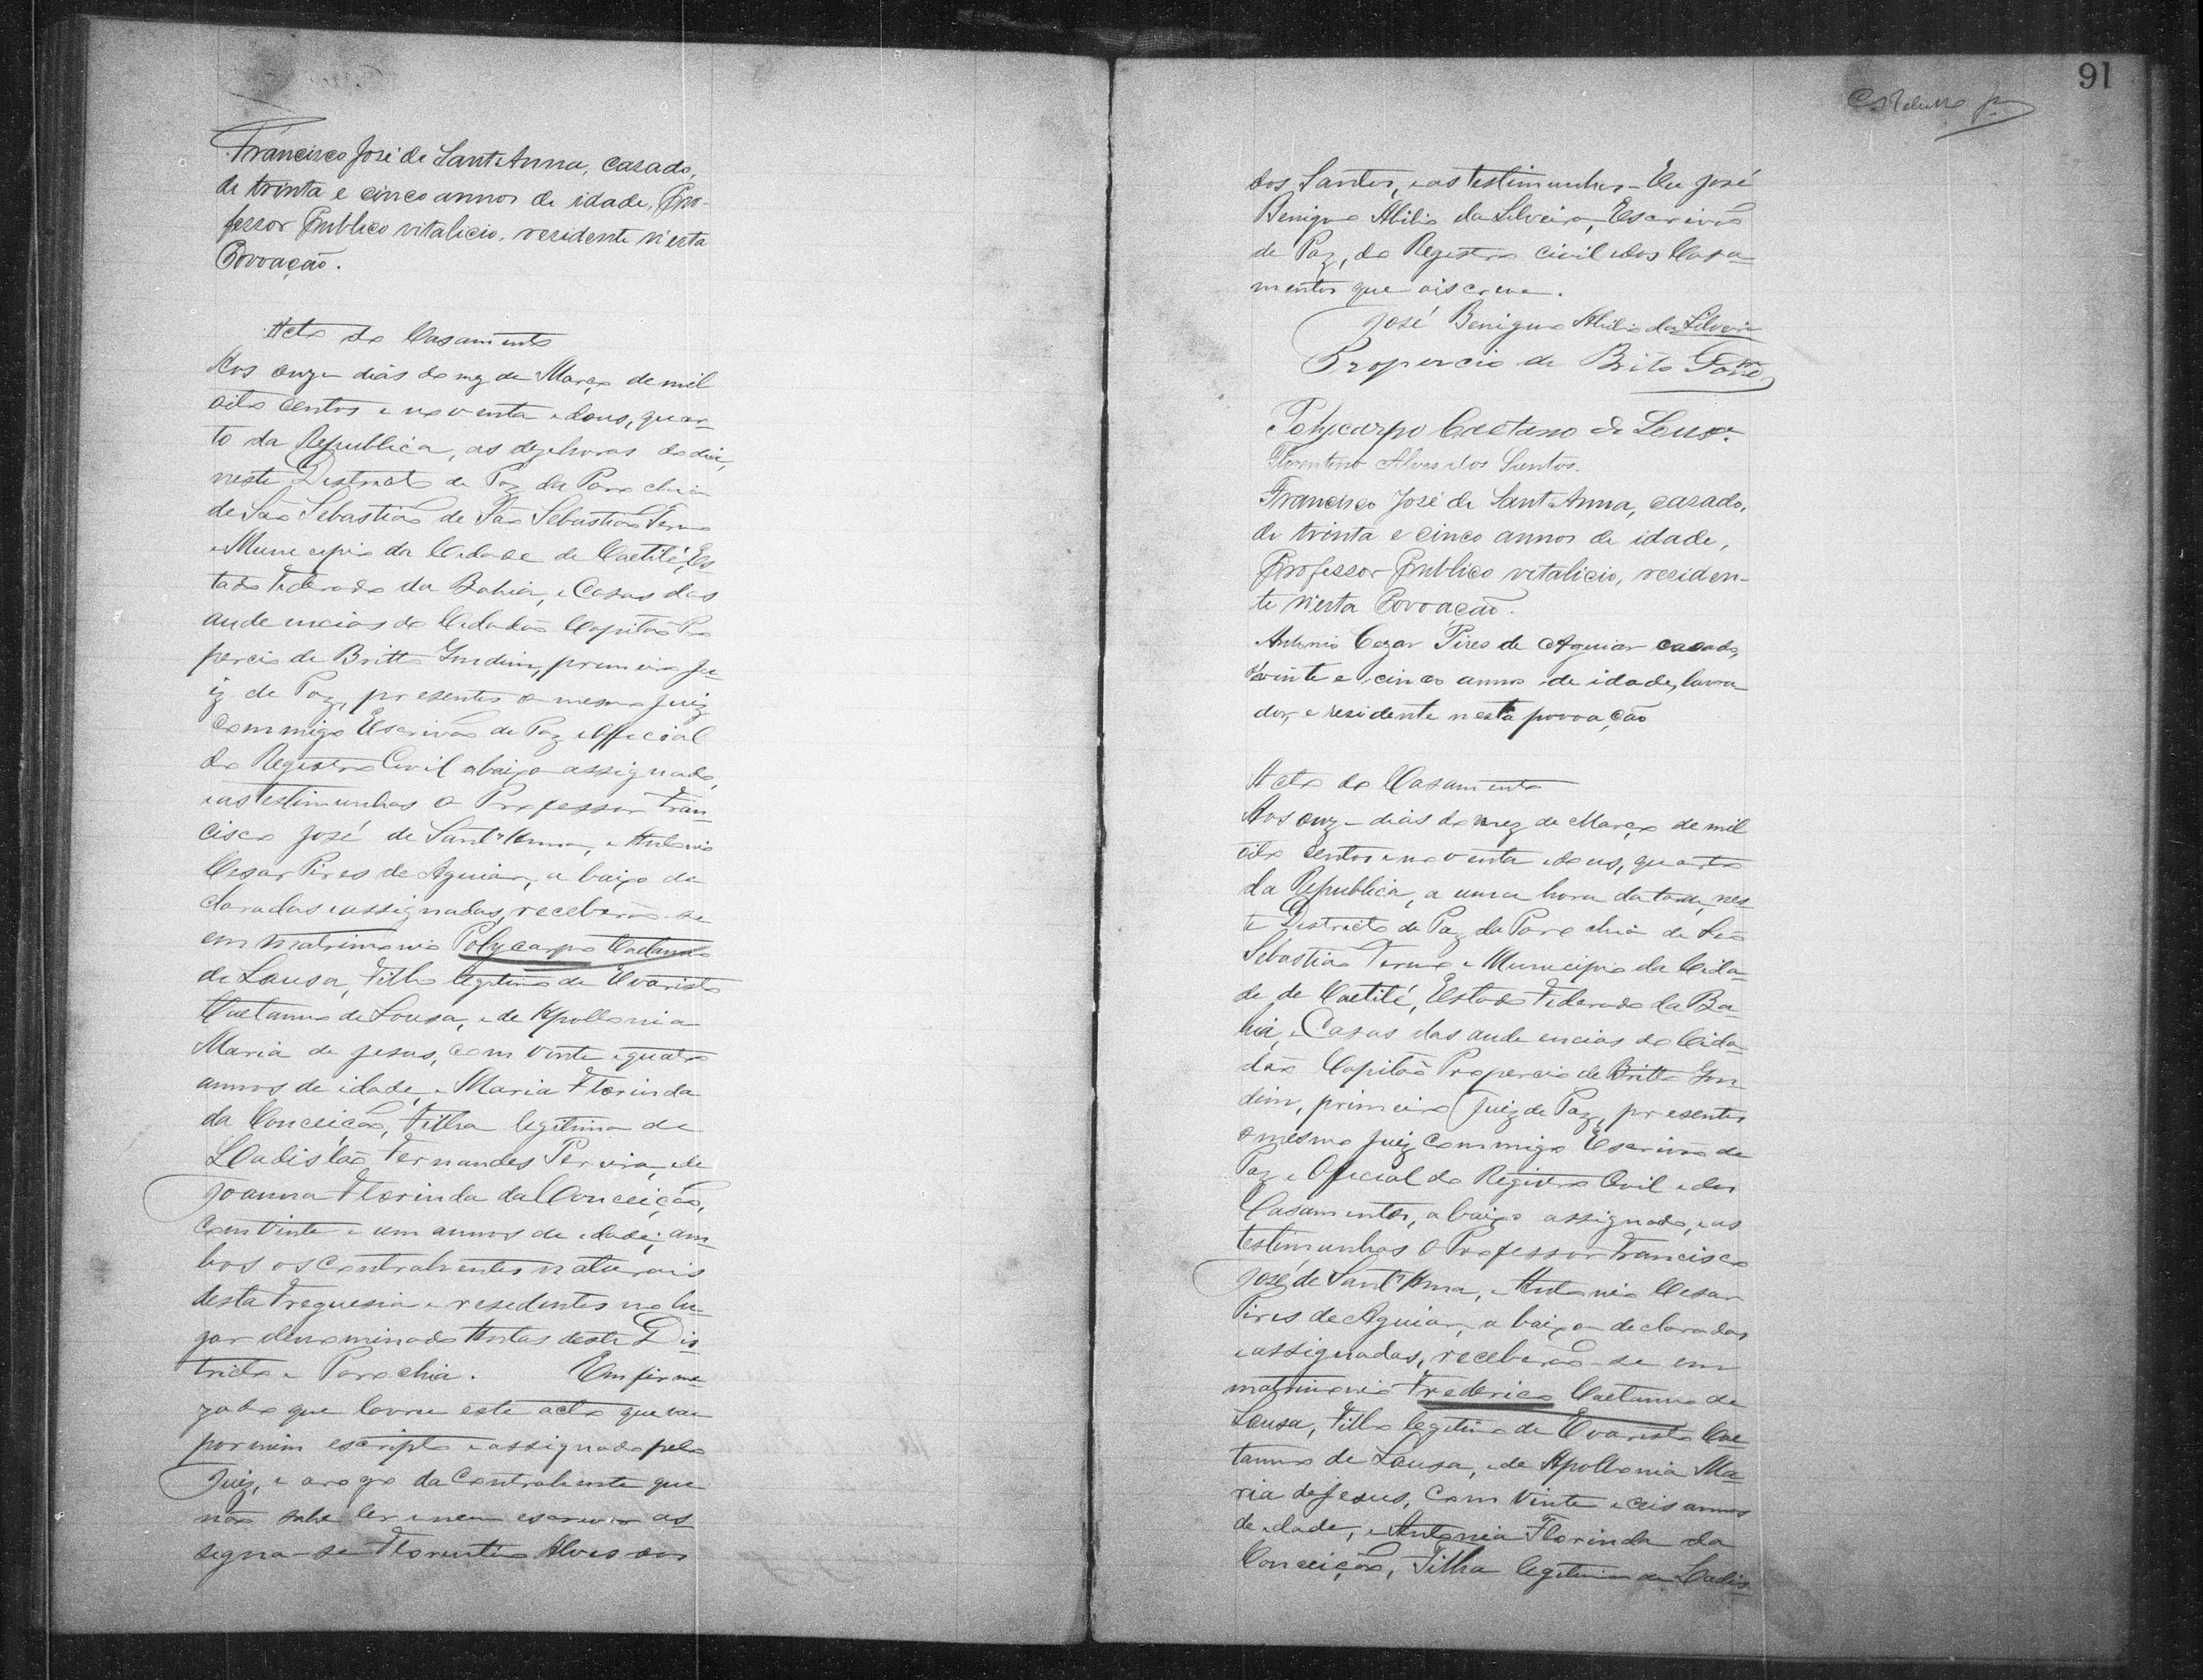 Francisco José de Sant'Anna, casado,
de trinta e cinco annos de idade, Pro-
fessor Publico vitalicio, residente n'esta
Povoação.
Acto do Casamento
Aos onze dias do mez de Março de mil
oito centos e noventa e dous, quar-
to da Republica, as dez horas do dia,
neste Districto de Paz da Parochia
de São Sebastião de São Sebastião Termo
e Municipio da Cidade de Caetité, Es-
tado Federado da Bahia, e Casas das
audencias do Cidadão Capitão Pro
percio de Britto Gondim, primeiro Ju-
iz de Paz, presentes o mesmo Juiz
commigo Escrivão de Paz e Official
do Registro Civil abaixo assignado,
e as testimunhas o Professor Fran-
cisco José de Sant'Anna, e Antonio
Cesar Pires de Aguiar, a baixo de
claradas e assignadas, receberão-se
em matrimonio Polycarpo Caetano
de Sousa, Filho legitimo de Evaristo
Caetanno de Sousa, e de Apollonia
Maria de Jesus, com vinte e quatro
annos de idade, e Maria Florinda
da Conceição, Filha legitima de
Ladislão Fernandes Pereira, e de
Joanna Florinda da Conceição,
com vinte e um annos de idade; am-
bos os contrahentes naturais
desta Freguesia e residentes no lu-
gar denominado Antas deste Dis-
tricto e Parochia. Em firme
za do que lavrei este acto que vae
por mim escripto e assignado pelo
Juiz, e a rogo da Contrahente que
não sabe ler e nem escrever as-
signa-se Florentino Alves dos
91
dos Santos, e as testimunhas - Eu José
Benigno Abilio da Silveira, Escrivão
de Paz, do Registro civil e dos Casa-
mentos que o iscrevi.
José Benigno Abilio da Silveira
Propercio de Brito Gond.ᵐ
Polycarpo Caetano de Sousª
Florentino Alves dos Santos.
Francisco José de Sant'Anna, casado,
de trinta e cinco annos de idade,
Professor Publico vitalicio, residen-
te n'esta Povoação.
Antonio Cezar Pires de Aguiar casado,
vinte e cinco annos de idade, lavra
dor, e residente nesta povoação
Acto do Casamento
Aos onze dias do mez de Março de mil
oito centos e noventa e dous, quarto
da Republica, a uma hora da tarde, nes-
te Districto de Paz da Parochia de São
Sebastião Termo e Municipio da Cida-
de de Caetité, Estado Federado da Ba-
hia, e Casas das audencias do Cida-
dão Capitão Propercio de Britto Gon
dim, primeiro Juiz de Paz, presentes
o mesmo Juiz commigo Escrivão de
Paz e Official do Registro Civil e dos
Casamentos, abaixo assignado, e as
testimunhas o Professor Francisco
José de Sant'Anna, e Antonio Cesar
Pires de Aguiar, a baixo declaradas
e assignadas, receberão-se em
matrimonio Frederico Caetanno de
Sousa, Filho legitimo de Evaristo Cae-
tanno de Sousa, e de Apollonia Ma-
ria de Jesus, com vinte e ceis annos
de idade, e Antonia Florinda da
Conceição, Filha legitima de Ladis